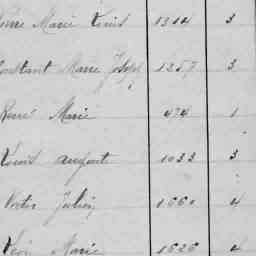 Pierre Marie Louis 1314 3
Constant Marie Joseph 1257 3
René Marie 474 1
Louis auguste 1033 3
Victor Julien 1660 4
Marie 1626 4